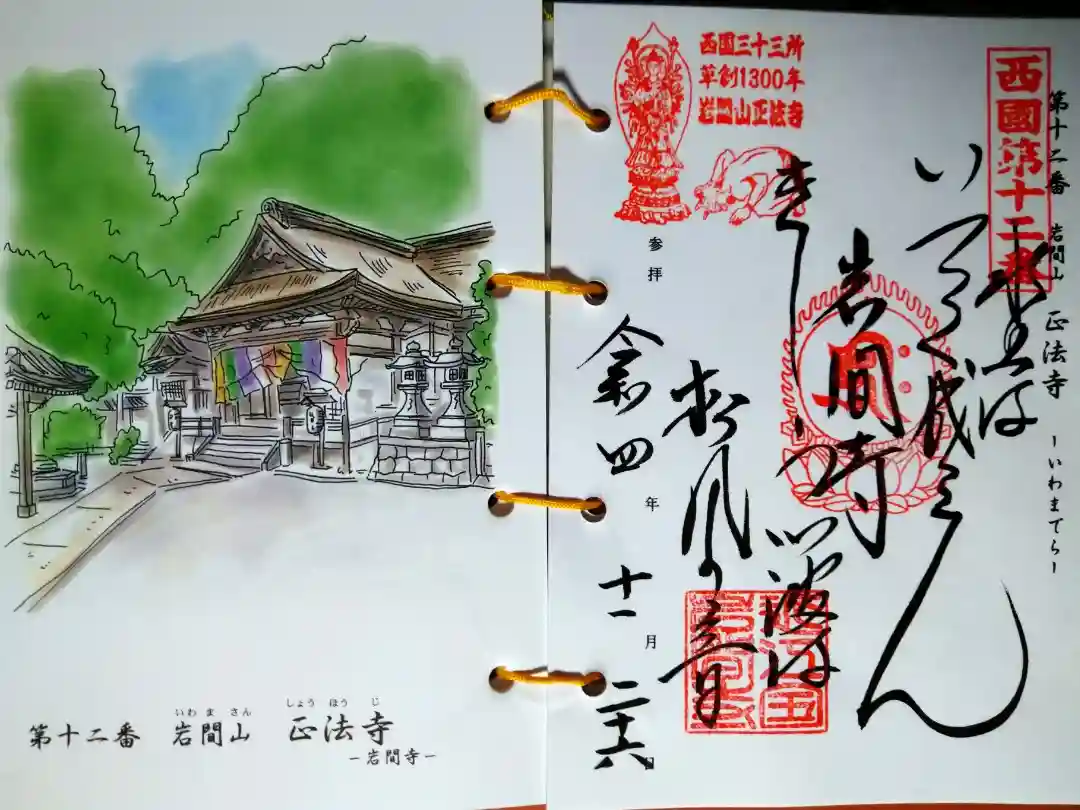 いわ ま さん しょう ほう じ
第十二番 岩間山 正法寺
－岩間寺－
西国三十三所
草創1300年
岩間山正法寺
西國第十二番
第十二番 岩間山 正法寺 －いわまてら－
水上は
いつく成らん
岩間寺
きしうつ波は
松風の音
参拝 令和四年十一月二十六日